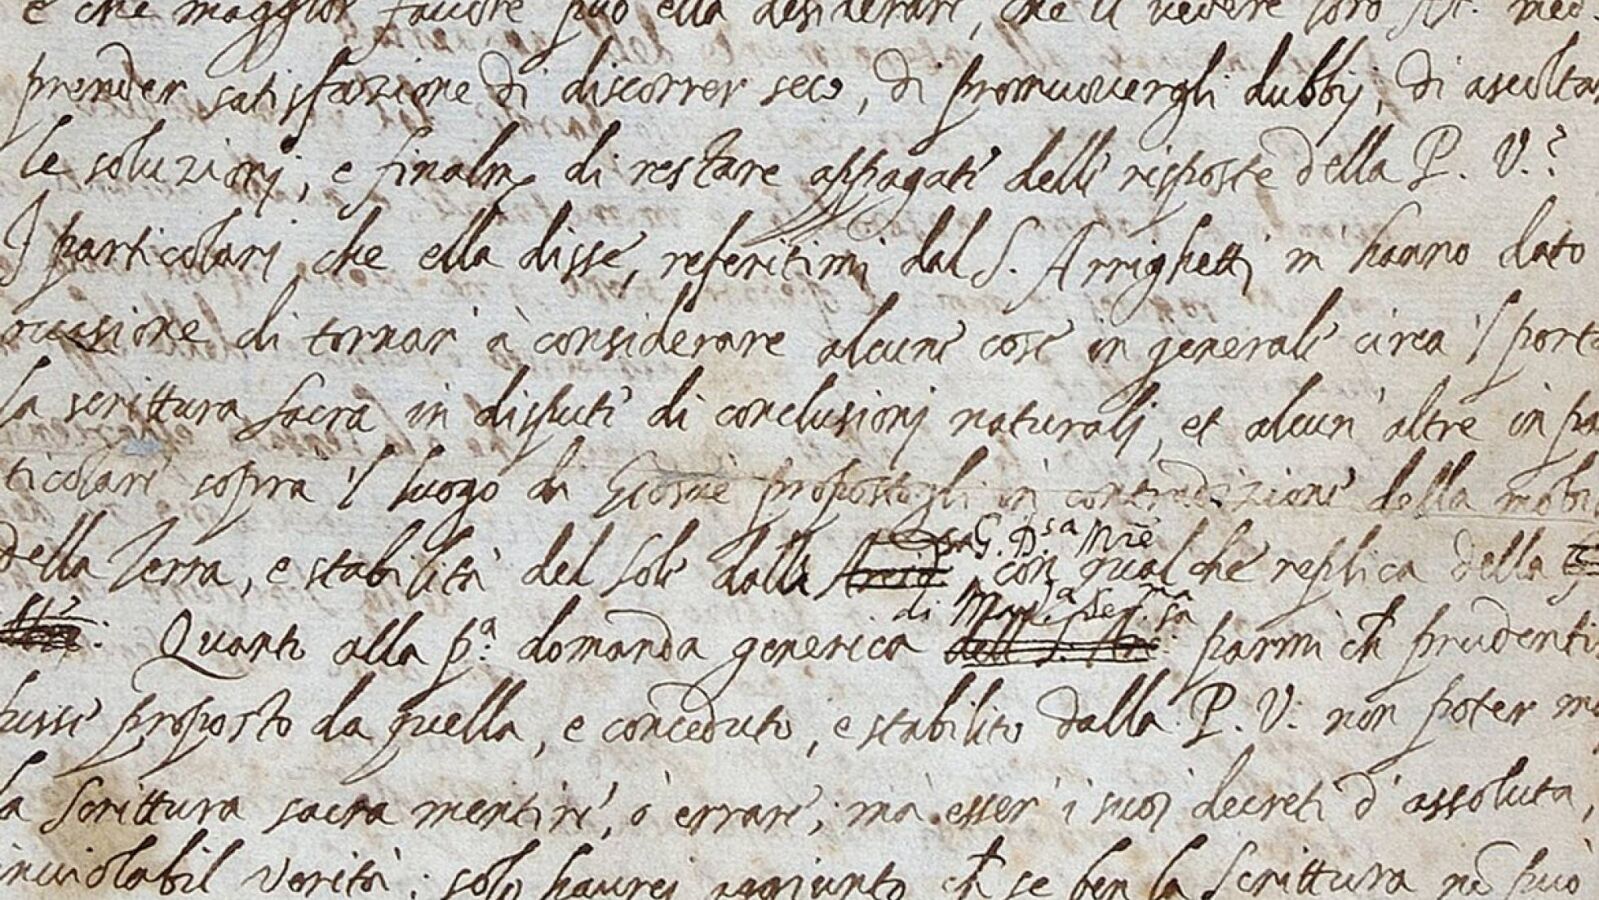 e che maggior favore può ella desiderare, che il vedere loro Al. med.
prender satisfazione di discorrer seco, di promuovergli dubbij, di ascoltar
le soluzionj, e finalm.e di restare appagate delle risposte della P. V.?
I particolari che ella disse, referitimi dal S. Arrighetti m' hanno dato
occasione di tornar' à considerare alcune cose in generale circa 'l port
la scrittura sacra in dispute di conclusionj naturalj, et alcun' altre in pa
ticolare sopra 'l luogo di Giosuè propostogli in contradizione della mobil
sa G. D.sa M.re
della Terra, e stabilità del Sole dalla con qualche replica della
di Mad.a Ser.ma sa
Quanto alla p.a domanda generica parmi ch prudentis
fusse proposto da quella, e conceduto, e stabilito dalla P. V. non poter m
la Scrittura sacra mentire, ò errare; mà esser' i suoj decreti d' assoluta,
inviolabil verità; solo haurej aggiunto ch se ben la Scrittura nõ può